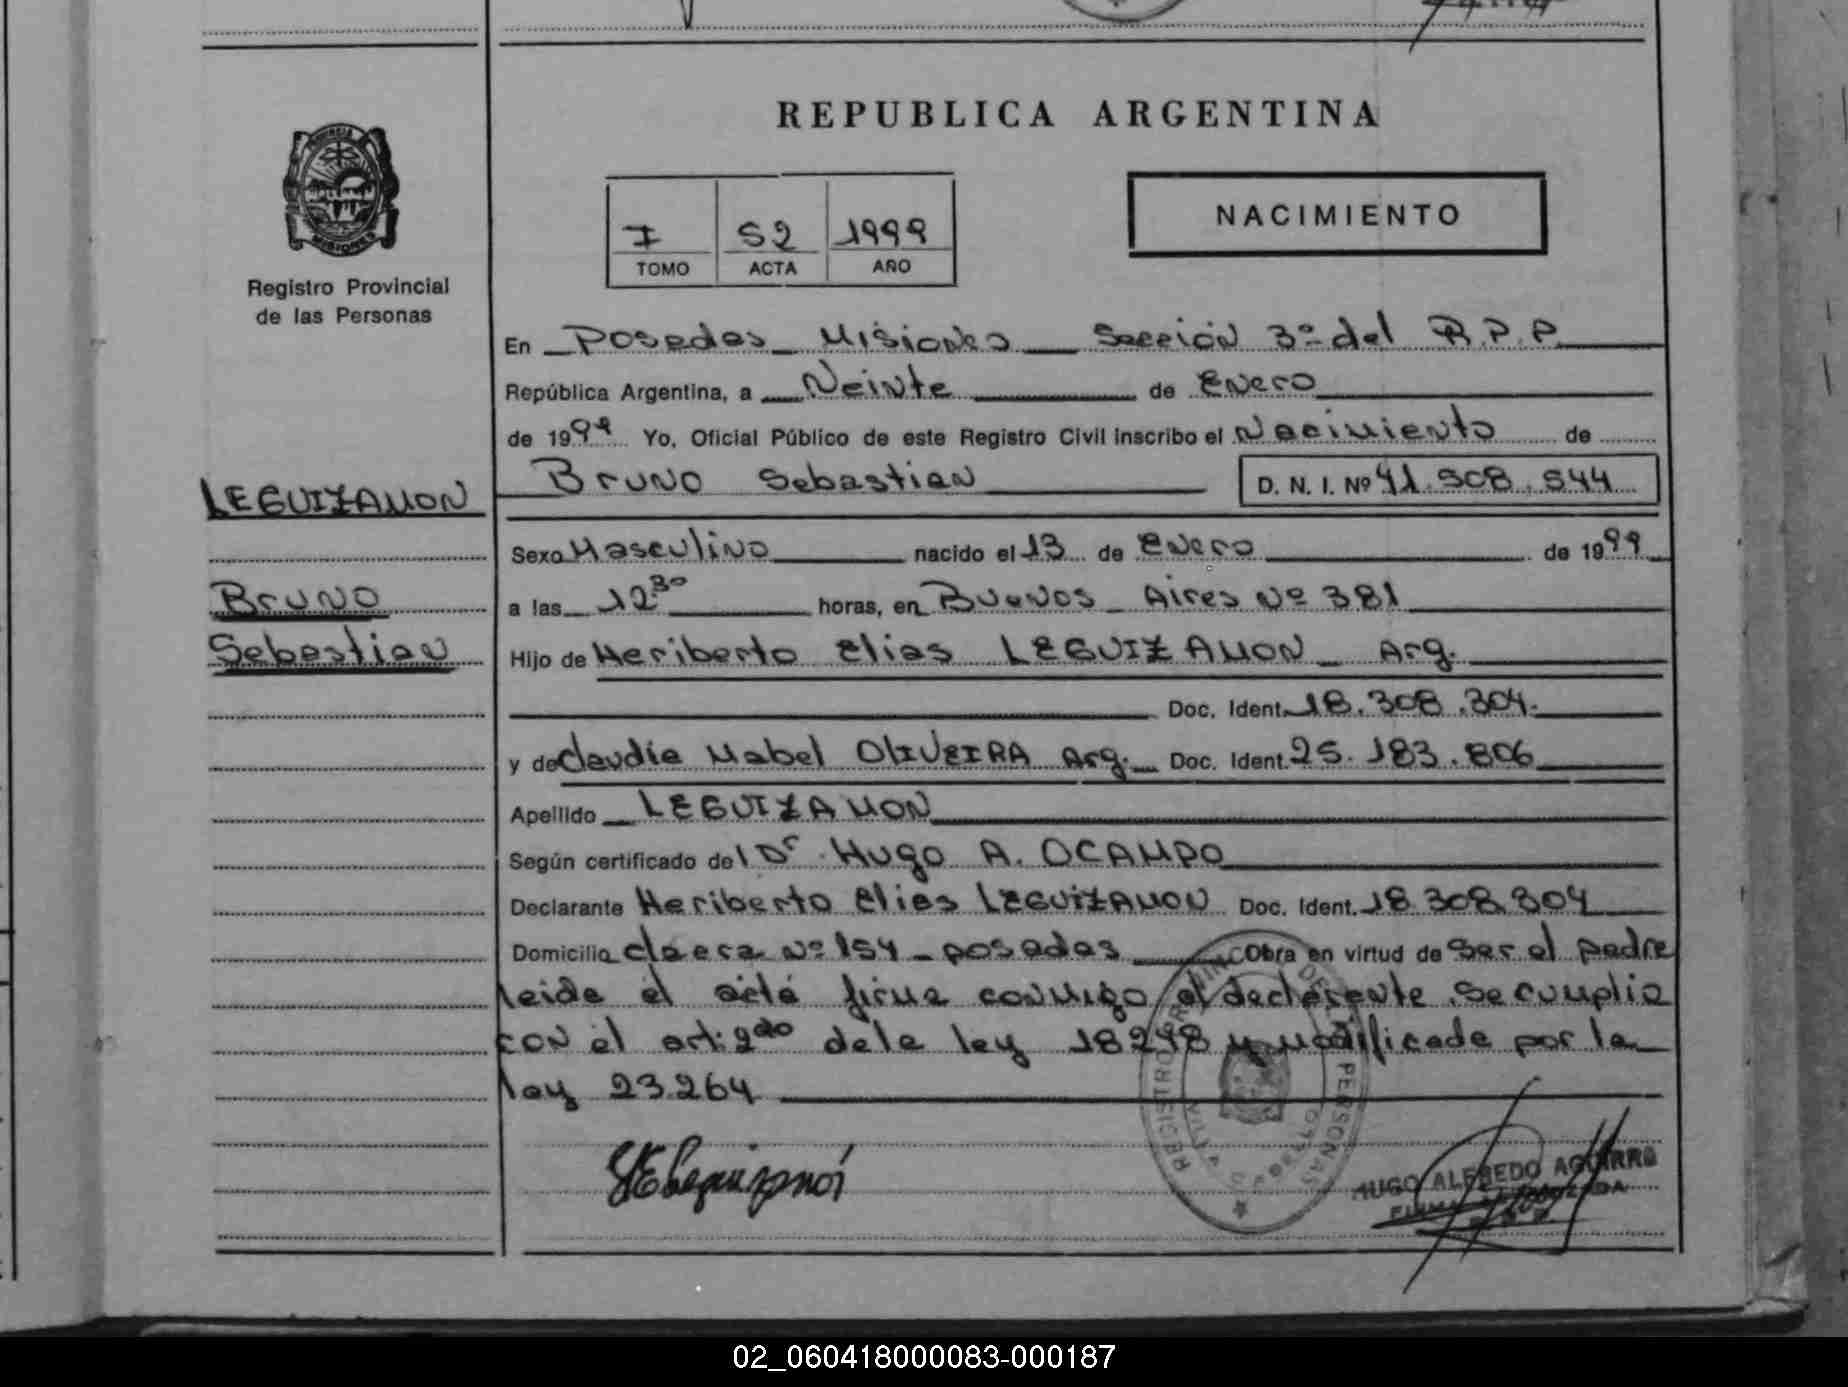 REPUBLICA ARGENTINA
I 52 1999
TOMO ACTA AÑO
NACIMIENTO
Registro Provincial
de las Personas
En Posadas Misiones Sección 3º del R.P.P.
República Argentina, a Veinte de Enero
de 1999 Yo, Oficial Público de este Registro Civil inscribo el Nacimiento de
Bruno Sebastian D. N. I. Nº 41.508.544
LEGUIZAMON
Sexo Masculino nacido el 13 de Enero de 1999
Bruno
a las 12 30 horas, en Buenos Aires Nº 381
Sebastian
Hijo de Heriberto Elias LEGUIZAMON Arg.
Doc. Ident. 18.308.304.
y de Claudia Mabel OLIVEIRA Arg. Doc. Ident. 25.183.806
Apellido LEGUIZAMON
Según certificado del Dr. Hugo A. OCAMPO
Declarante Heriberto Elias LEGUIZAMON Doc. Ident. 18.308.304
Domicilio Nº 154 - Posadas Obra en virtud de ser el padre
leida el acta firma conmigo el declarante. Se cumplio
con el art. 2do de la ley 18248 y modificada por la
ley 23.264
REGISTRO DE LAS PERSONAS
HUGO ALFREDO AGUIRRE
02_060418000083-000187